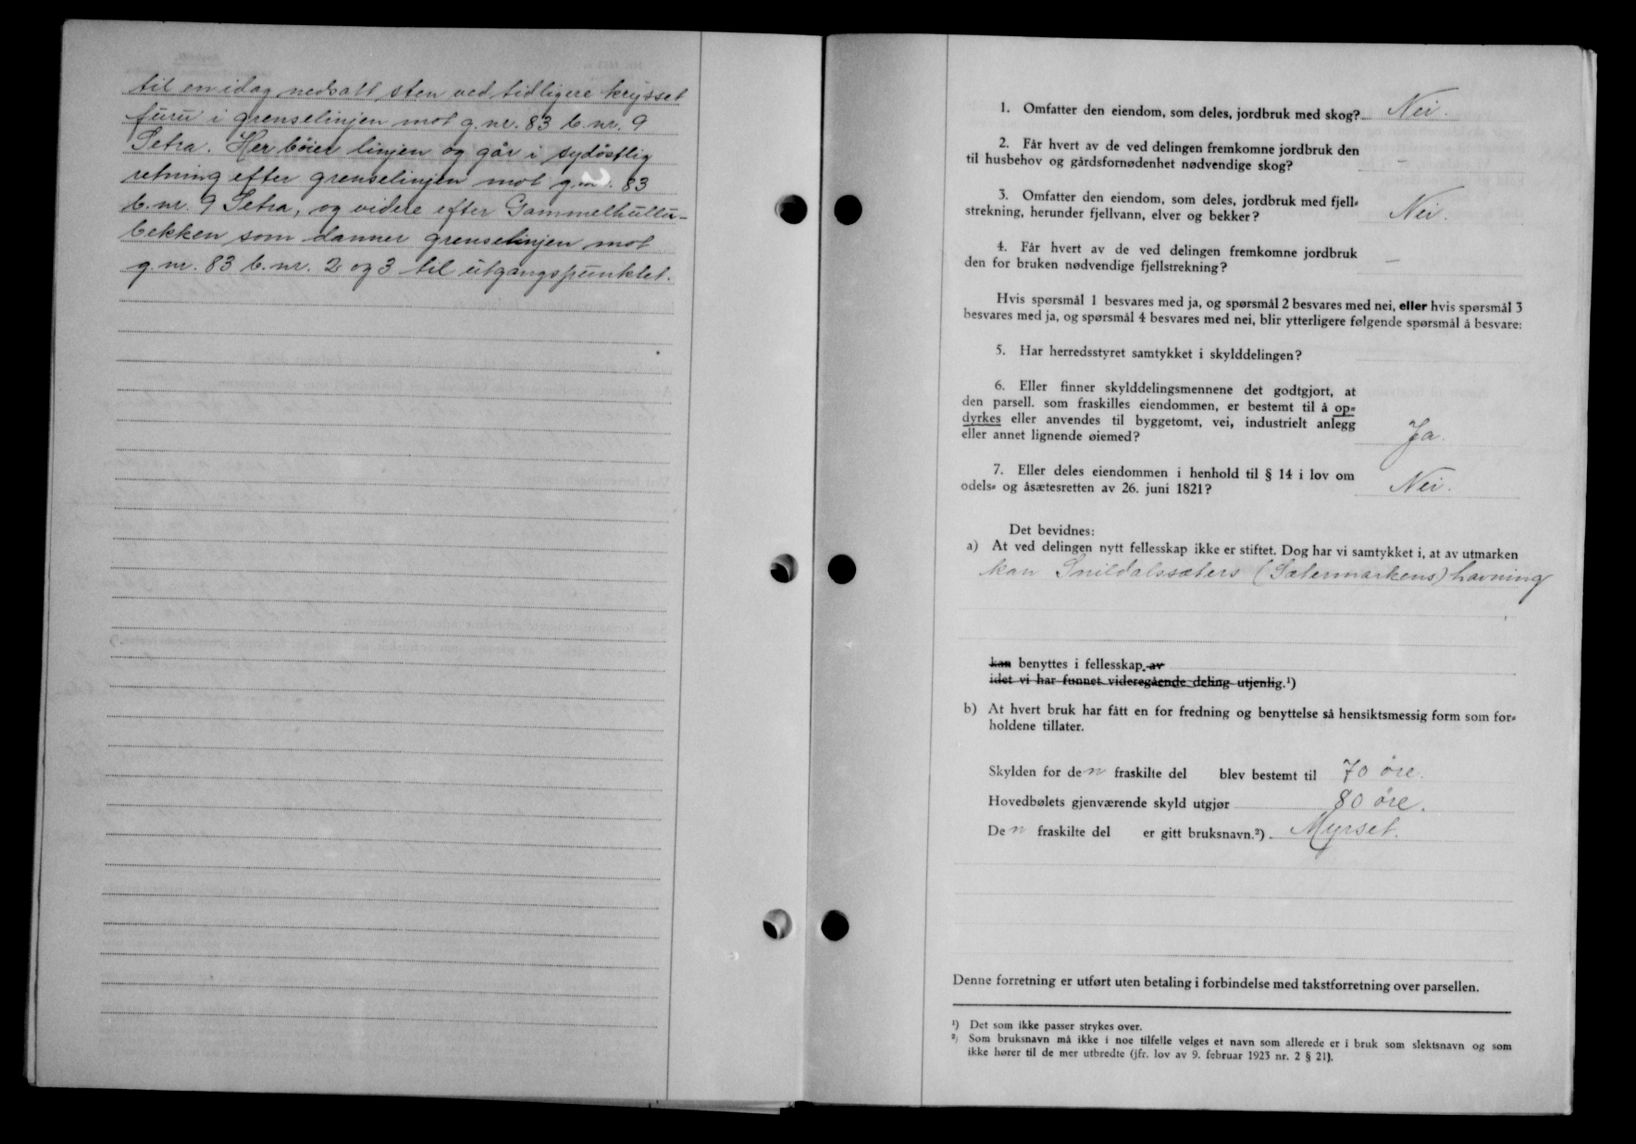 til en idag nedsatt sten ved tidligere krysset
furu i grenselinjen mot g.nr. 83 b.nr. 9
Setra. Her böier linjen og går i sydöstlig
retning efter grenselinjen mot g.nr. 83
b.nr. 9 Setra, og videre efter Gammelhullu-
bekken som danner grenselinjen mot
g.nr. 83 b.nr. 2 og 3 til utgangspunktet.
1. Omfatter den eiendom, som deles, jordbruk med skog? Nei.
2. Får hvert av de ved delingen fremkomne jordbruk den
til husbehov og gårdsfornødenhet nødvendige skog? –
3. Omfatter den eiendom, som deles, jordbruk med fjell-
strekning, herunder fjellvann, elver og bekker? Nei.
4. Får hvert av de ved delingen fremkomne jordbruk
den for bruken nødvendige fjellstrekning? –
Hvis spørsmål 1 besvares med ja, og spørsmål 2 besvares med nei, eller hvis spørsmål 3
besvares med ja, og spørsmål 4 besvares med nei, blir ytterligere følgende spørsmål å besvare:
5. Har herredsstyret samtykket i skylddelingen?
6. Eller finner skylddelingsmennene det godtgjort, at
den parsell. som fraskilles eiendommen, er bestemt til å op-
dyrkes eller anvendes til byggetomt, vei, industrielt anlegg
eller annet lignende øiemed? Ja.
7. Eller deles eiendommen i henhold til § 14 i lov om
odels- og åsætesretten av 26. juni 1821? Nei.
Det bevidnes:
a) At ved delingen nytt fellesskap ikke er stiftet. Dog har vi samtykket i, at av utmarken
kan Snildalssæters (Sætermarkens) havning
kan benyttes i fellesskap. av
idet vi har funnet videregående deling utjenlig.¹)
b) At hvert bruk har fått en for fredning og benyttelse så hensiktsmessig form som for-
holdene tillater.
Skylden for den fraskilte del blev bestemt til 70 öre.
Hovedbølets gjenværende skyld utgjør 80 öre.
Den fraskilte del er gitt bruksnavn.²) Myrset.
Denne forretning er utført uten betaling i forbindelse med takstforretning over parsellen.
¹) Det som ikke passer strykes over.
²) Som bruksnavn må ikke i noe tilfelle velges et navn som allerede er i bruk som slektsnavn og som
ikke hører til de mer utbredte (jfr. lov av 9. februar 1923 nr. 2 § 21).